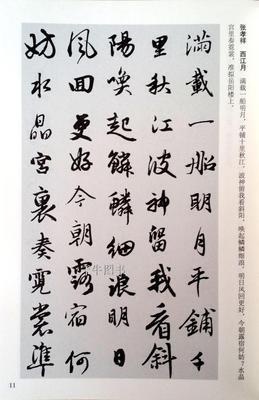 张孝祥 西江月 满载一船明月，平铺千里秋江。波神留我看斜阳，唤起鳞鳞细浪。明日风回更好，今朝露宿何妨？水晶
宫里奏霓裳，准拟岳阳楼上。
滿載一船明月平鋪千
里秋江波神留我看斜
陽喚起鱗鱗細浪明日
風回更好今朝露宿何
妨水晶宮裏奏霓裳準
11